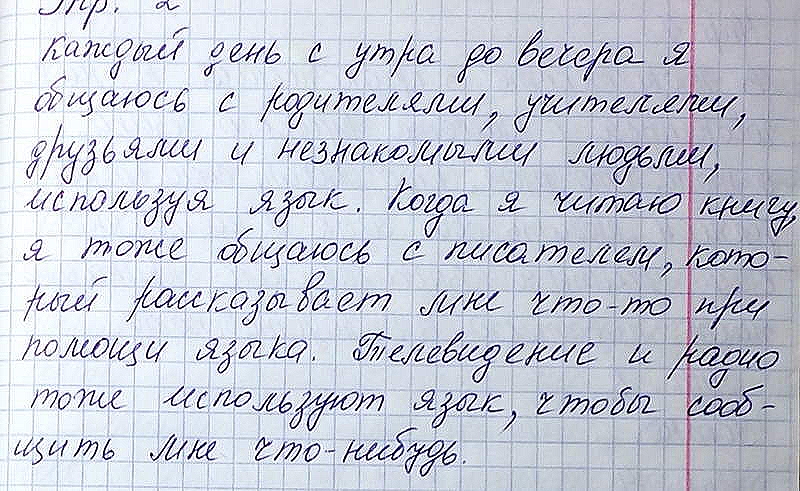 Упр. 2
Каждый день с утра до вечера я
общаюсь с родителями, учителями,
друзьями и незнакомыми людьми,
используя язык. Когда я читаю книгу,
я тоже общаюсь с писателем, кото-
рый рассказывает мне что-то при
помощи языка. Телевидение и радио
тоже используют язык, чтобы сооб-
щить мне что-нибудь.